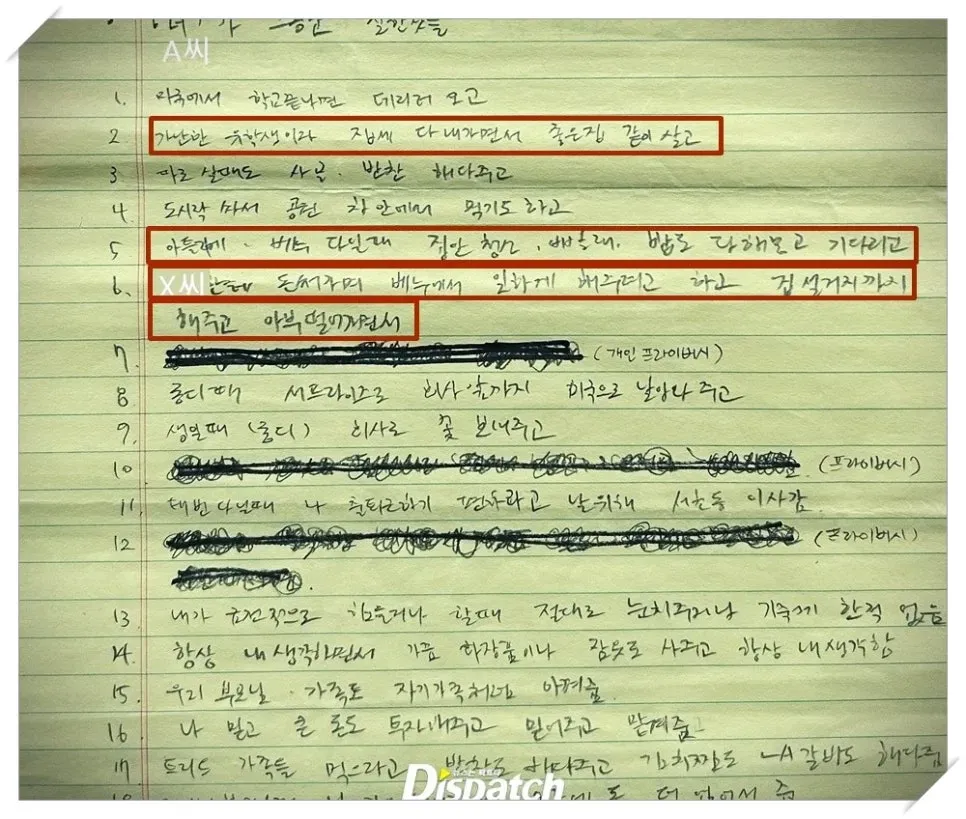 A씨
1. 미국에서 학교끝나면 데리러 오고
2 가난한 유학생이라 집세 다 내가면서 좋은집 같이 살고
3 따로 살때도 사골. 반찬 해다주고
4. 도시락 싸서 공원 차안에서 먹기도 하고
5 다닐때 집안 청소, 빨래. 밥도 다해놓고 기다리고
6. X씨한테 돈써주며 일하게 해주려고 하고 집 설거지까지
해주고 아부떨어가면서
7. (개인 프라이버시)
8 롱디때 서프라이즈로 회사 앞까지 미국으로 날아와 주고
9. 생일때 (롱디) 회사로 꽃 보내주고
10 (프라이버시)
11. 다닐때 나 출퇴근하기 편하라고 날위해 서초동 이사감
12 (프라이버시)
13 내가 금전적으로 힘들거나 할때 절대로 눈치주거나 기죽게 한적 없음
14. 항상 내생각하면서 가끔 화장품이나 잠옷도 사주고 항상 내생각함
15. 우리 부모님. 가족도 자기가족처럼 아껴줌
16 나 믿고 큰 돈도 투자해주고 믿어주고 맡겨줌
17 가족들 먹으라고 반찬도 해다주고 김치찜도 LA갈비도 해다줌
Dispatch
18